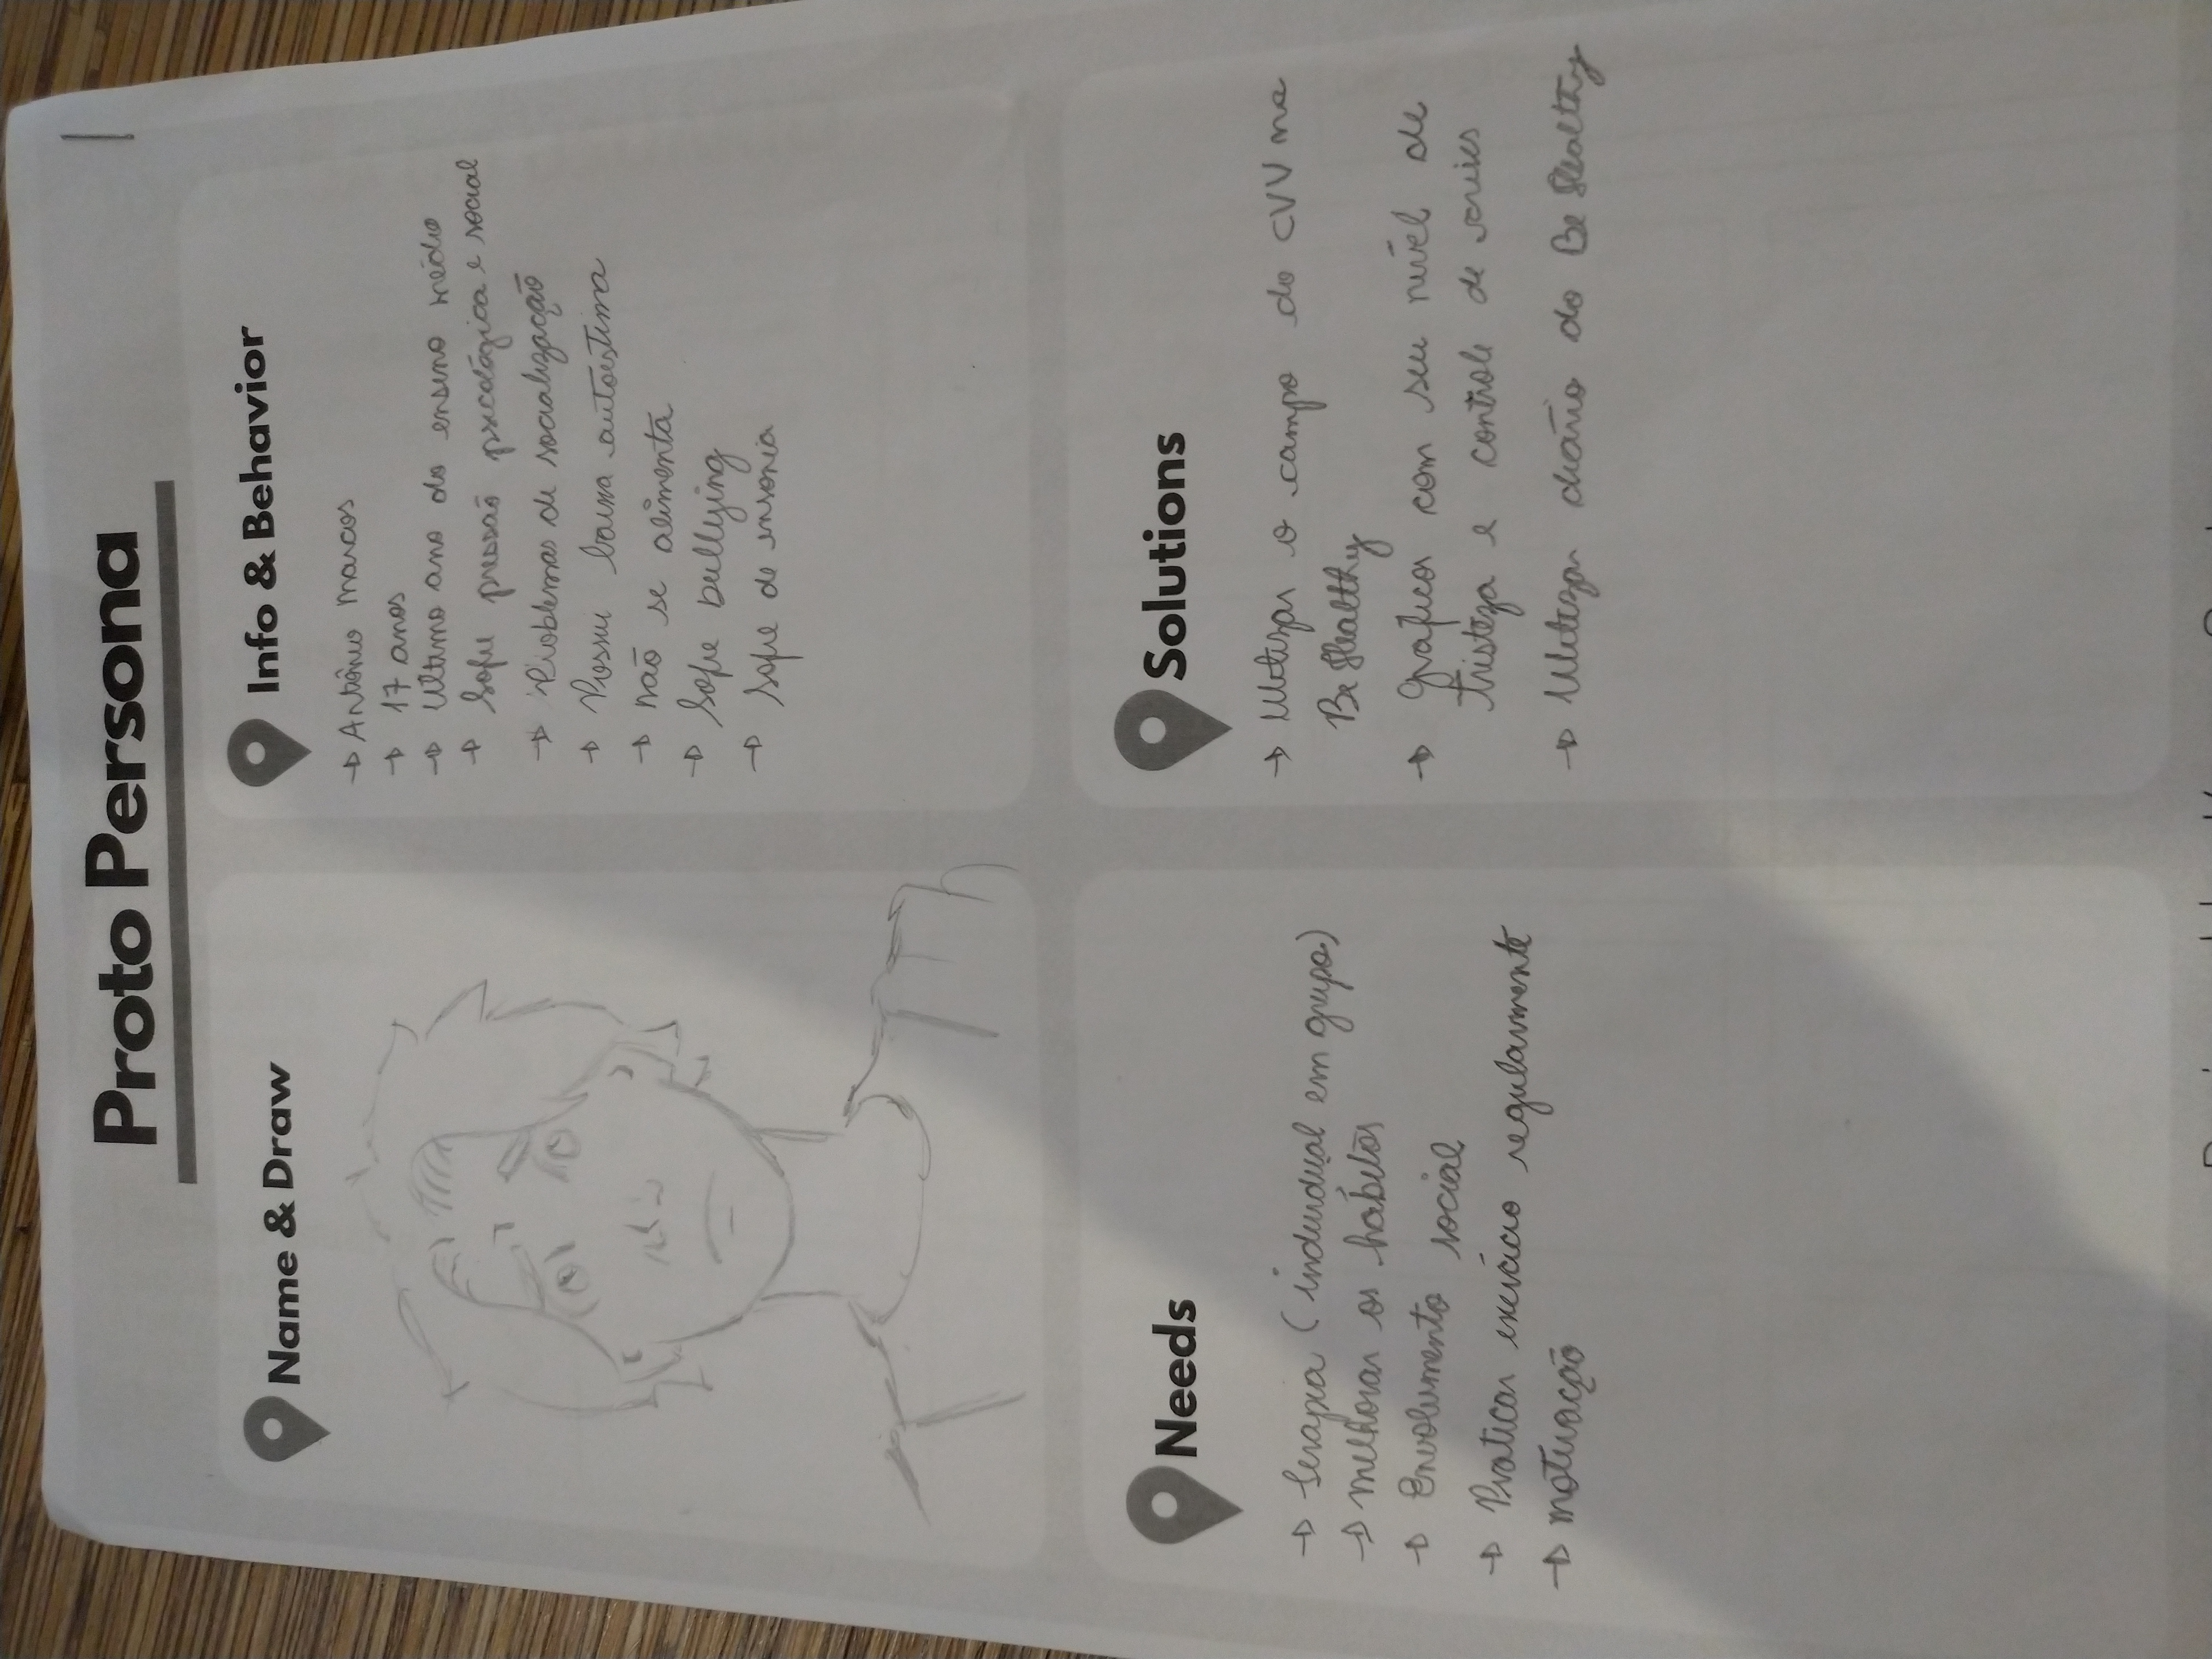 Proto Persona
1
Name & Draw
Info & Behavior
→ Antônio marcos
→ 17 anos
→ Ultimo ano do ensino médio
→ Sofre pressão psicológica e social
→ Problemas de socialização
→ Possui baixa autoestima
→ não se alimenta
→ Sofre bullying
→ Sofre de insonia
Needs
→ terapia (individual em grupo)
→ melhorar os habitos
→ Envolvimento social
→ Praticar exercício regularmente
→ motivação
Solutions
→ Utilizar o campo do CVV na
Be Healthy
→ grafico com seu nível de
tristeza e controle de crises
→ Utilizar diário do Be Healthy